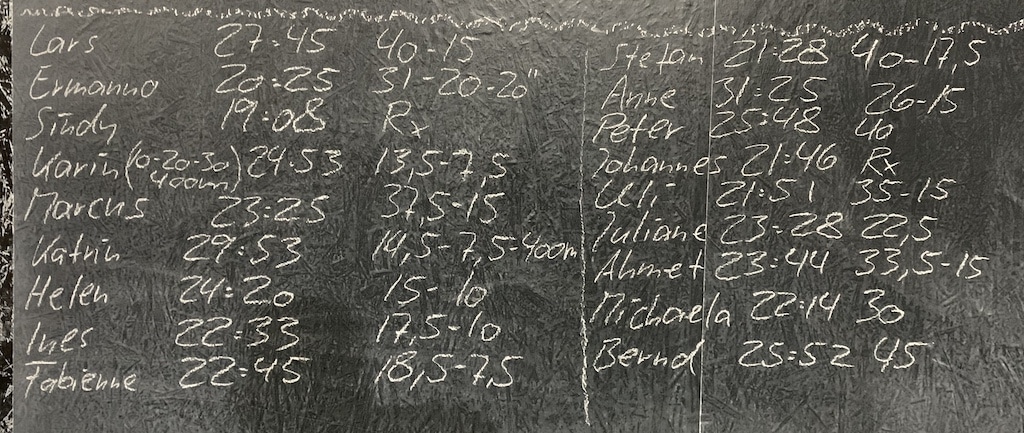 Lars 27:45 40-15
Ermanno 20:25 31-20-20"
Sindy 19:08 Rx
Karin (10-20-30 400m) 24:53 13,5-7,5
Marcus 23:25 37,5-15
Katrin 29:53 14,5-7,5-400m
Helen 24:20 15-10
Ines 22:33 17,5-10
Fabienne 22:45 18,5-7,5
Stefan 21:28 40-17,5
Anne 31:25 26-15
Peter 25:48 40
Johannes 21:46 Rx
Uli 21:51 35-15
Juliane 23:28 22,5
Ahmet 23:44 33,5-15
Michaela 22:14 30
Bernd 25:52 45